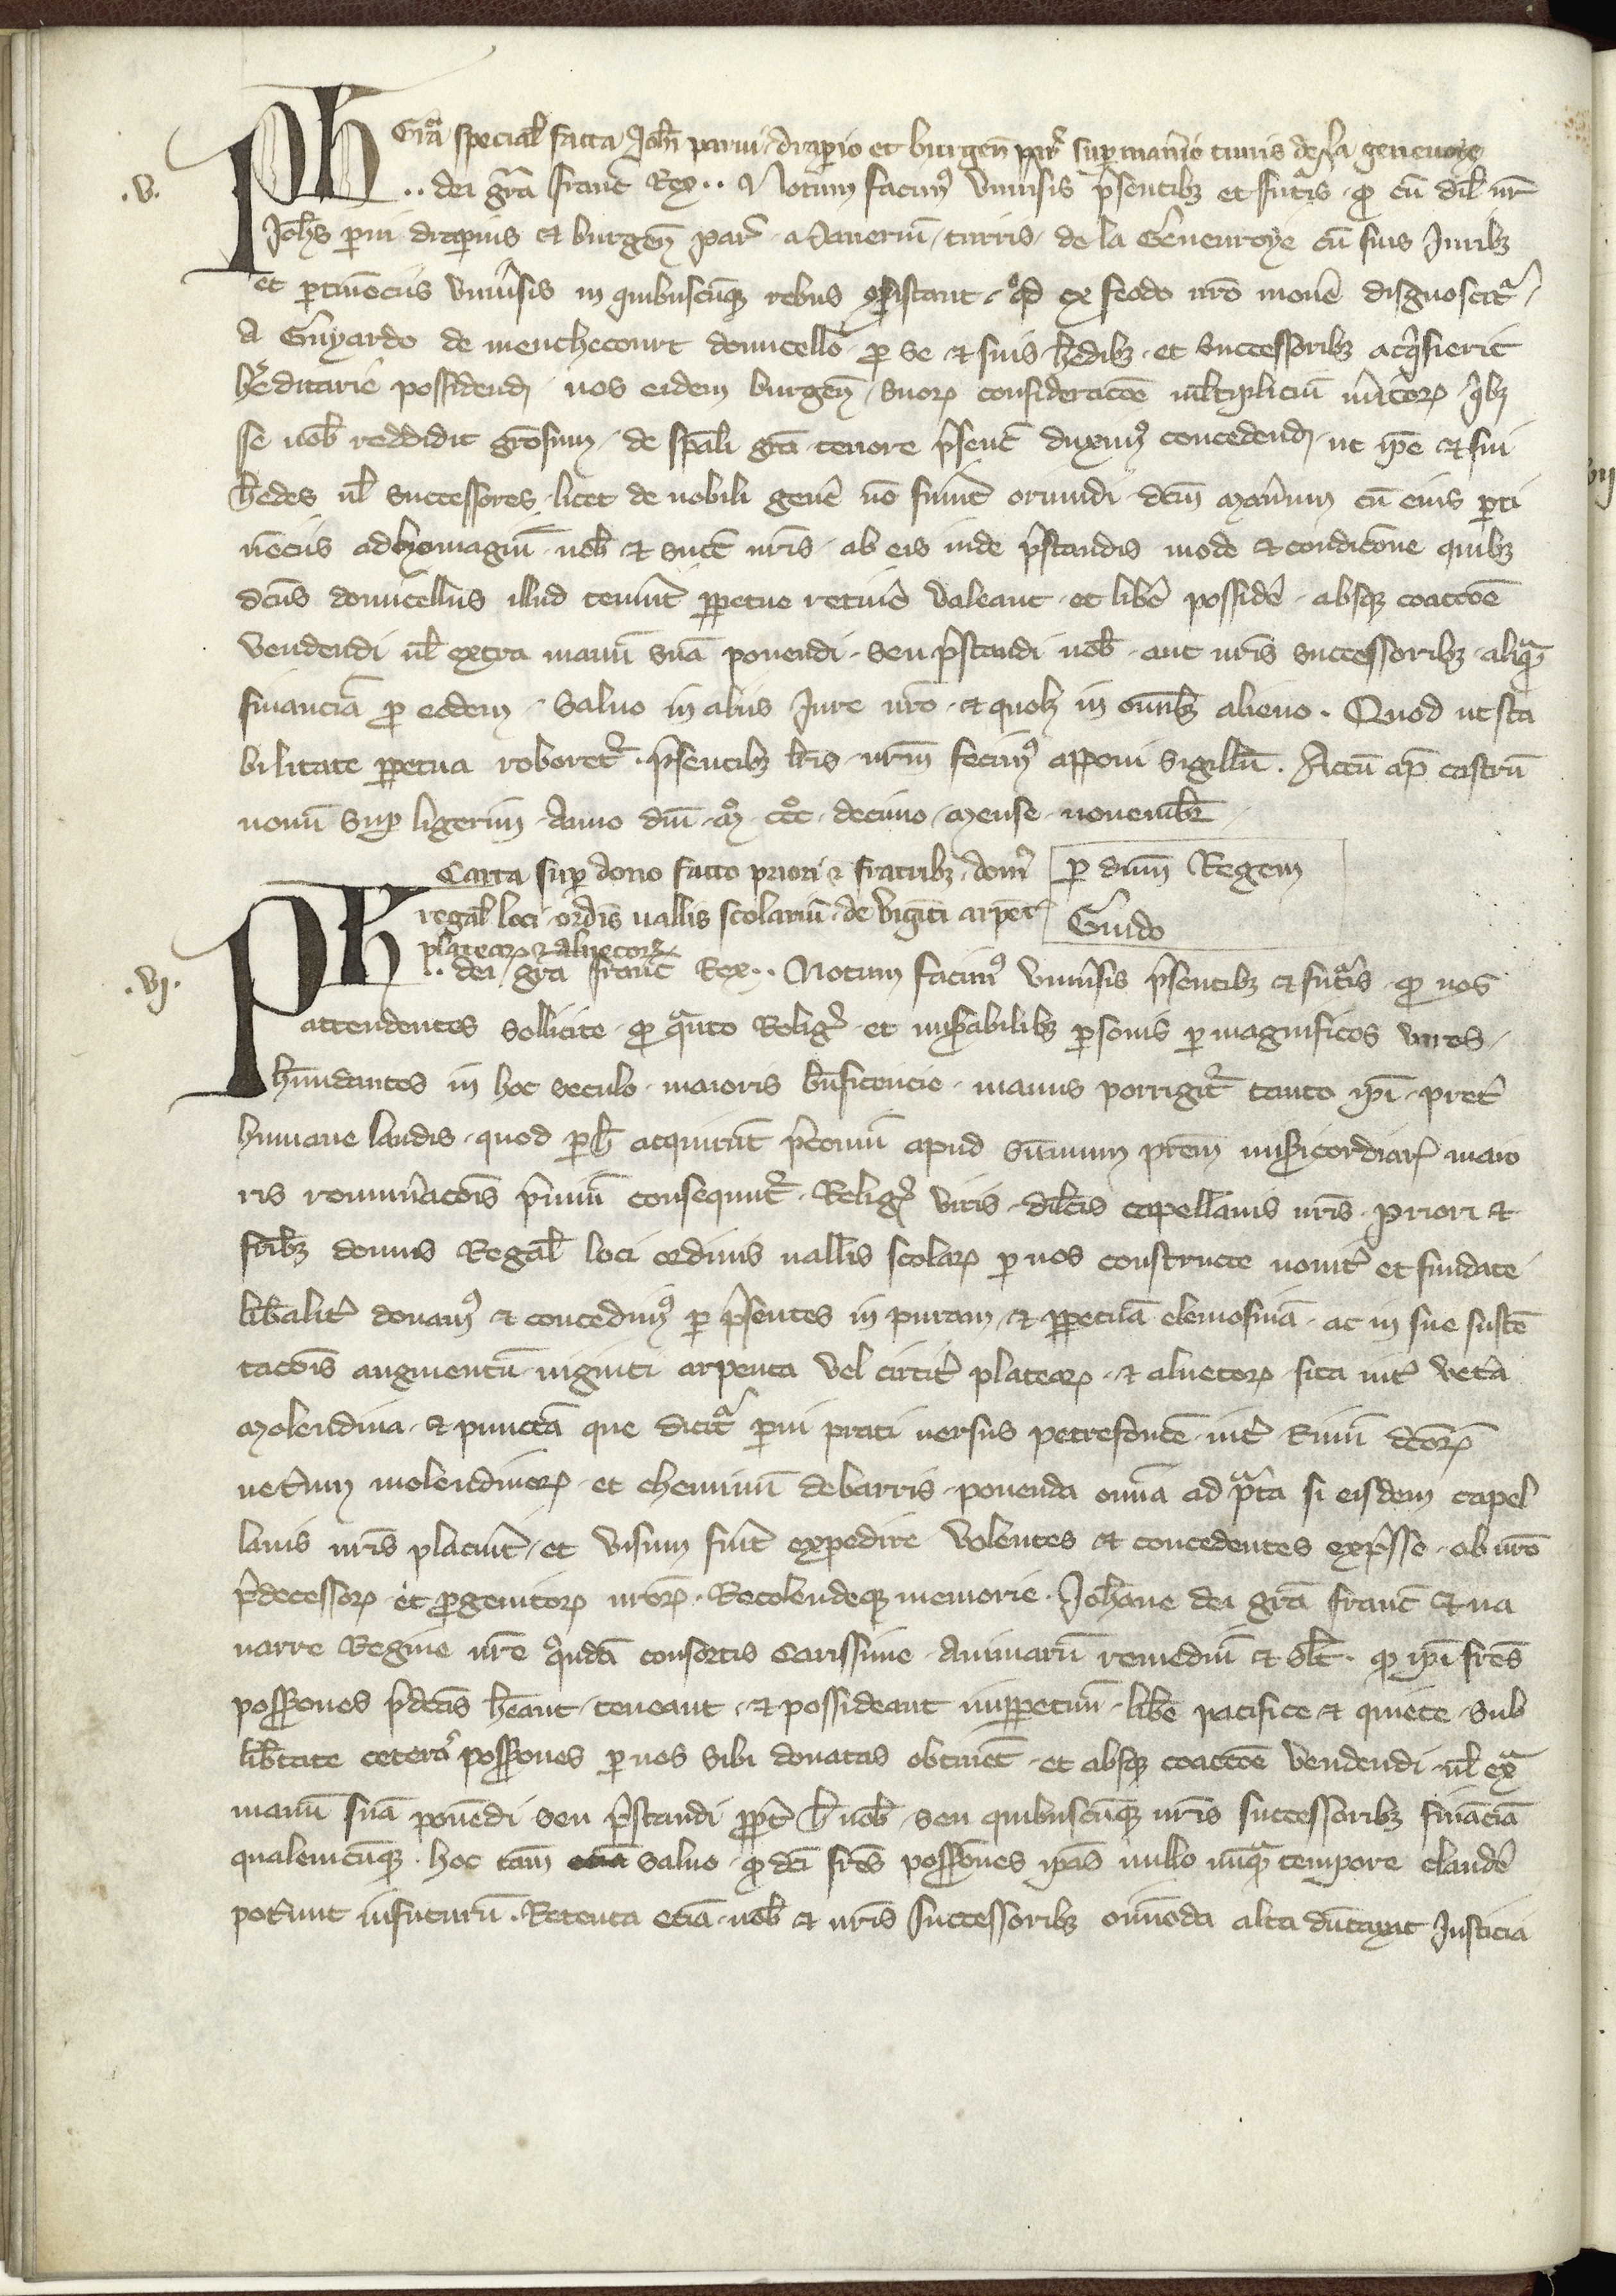 Gr̃a special̃ facta Joh̃i parui drap̱io et burgeñ par̃ sup̱ man̾io turris de la geneuoye
.v.
Ph̃ .. dei gr̃a franc̃ Rex .. Notum facimꝯ vniu̾sis p̾sentibꝫ et futuris ꝙ cũ dil̃ nr̃
Joh̃s p̱ui drap̱ius et burgeñ par̃ Maneriũ turris de la Geneuroye cũ suis Juribꝫ
et p̱tinẽciis vniu̾sis in quibuscũqꝫ rebus ꝯsistant qd̾ ex feodo nr̃o mouẽ disgnoscit᷑
A Guyardo de menchecourt domicello p̱ se et suis h̾edibꝫ et successoribꝫ acq̾sierit
hereditarie possidend̾ nos eidem burgeñ suoꝝ consideracõe m̃ltipliciũ m̾itoꝝ q̾bꝫ
se nob̃ reddidit gr̃osum de sp̃ali gr̃a tenore p̾senc̃ duximꝯ concedend̾ ut ip̃e et sui
h̾edes ul̃ successores licet de nobili gen̾e nõ fuĩt oriundi dc̃m Man̾ium cũ eius p̱ti
nẽciis ad homagiũ nob̃ et succ̃ nr̃is ab eis inde p̾standis modo et condic̃one quibꝫ
dc̃us domicellus illud tenuit p̱petuo retin̾e valeant et lib̾e possid̾e absqꝫ coacc̃oe
vendendi ul̃ extra manũ suã ponendi seu p̾standi nob̃ aut nr̃is successoribꝫ aliquã
financiã p̱ eodem Saluo in aliis Jure nr̃o et quolꝫ in om̃ibꝫ alieno . Quod ut sta
bilitate p̱petua roboret᷑ p̾sentibꝫ l̃ris nr̃m fecimꝯ apponi sigillũ . Actũ ap̃ castrũ
nouũ sup̱ ligerim Anno dñi M̊ ccc̊ decimo Mense nouembr̃
p̱ dñm Regem
Guido
Carta sup̱ dono facto priori et fratribꝫ dom̾
regal̃ loci ordĩs uallis scolariũ de viginti arpent̃
plateaꝝ et alnetoꝝ
.vj.
Ph̃ .. dei gr̃a franc̃ Rex .. Notum facimꝯ vniu̾sis p̾sentibꝫ et futuris ꝙ nos
attendentes sollicite ꝙ quãto Relig̾ et mis̾abilibꝫ p̱sonis p̱ magnificos viros
h̃undantes in hoc seculo maioris bñficencie manus porrigit᷑ tanto ip̃i pret̾
humane laudis quod p̱ h̃ acquirũt p̾coniũ apud Sũmum pr̃em mis̾icordiaꝝ maio
ris remun̾acõis p̾miũ consequnt᷑ Relig̾ viris dil̃cis capellanis nr̃is Priori et
fr̃ibꝫ domus Regal̃ loci ordinis uallis scolaꝝ p̱ nos constructe nouit̾ et fundate
lib̾alit̾ donamꝯ et concedimꝯ p̱ p̾sentes in puram et p̱petuã elemosinã ac in sue sustẽ
tacõis augmentũ uiginti arpenta vel circit̾ plateaꝝ et alnetoꝝ sita int̾ vet̾a
Molendina et punctã que dicit᷑ p̱ui prati uersus petrefontẽ int̾ Riuũ dc̃oꝝ
uet̾um molendinoꝝ et cheminũ de barris ponenda om̃ia ad p̾ta si eisdem capel
lanis nr̃is placuit̾ et visum fuit̾ expedire Volentes et concedentes exp̾sse ob nr̃o
p̾decessoꝝ et p̱genitoꝝ nr̃oꝝ Recolendeqꝫ memorie Joh̃ane dei gr̃a franc̃ et na
uarre Regine nr̃e q̾ndã consortis Carissime Animarũ remediũ et sal̃t ꝙ ip̃i fr̃es
poss̃iones p̾dc̃as h̃eant teneant et possideant inp̱petuũ lib̾e pacifice et quiete Sub
lib̾tate cetera̾ poss̃iones p̱ nos sibi donatas obtinẽt et absqꝫ coacc̃oe vendendi ul̃ ex̾
manũ suã ponẽdi seu p̾standi p̱p̱t̾ h̾ nob̃ seu quibuscũqꝫ nr̃is successoribꝫ finãciã
qualemcũqꝫ . hoc tam̃ saluo ꝙ dc̃i fr̃es poss̃iones ip̃as nullo unquã tempore claud̾e
pot̾unt infuturũ . Retenta eciã nob̃ et nr̃is successoribꝫ om̃imoda alta dũtaxat Justicia